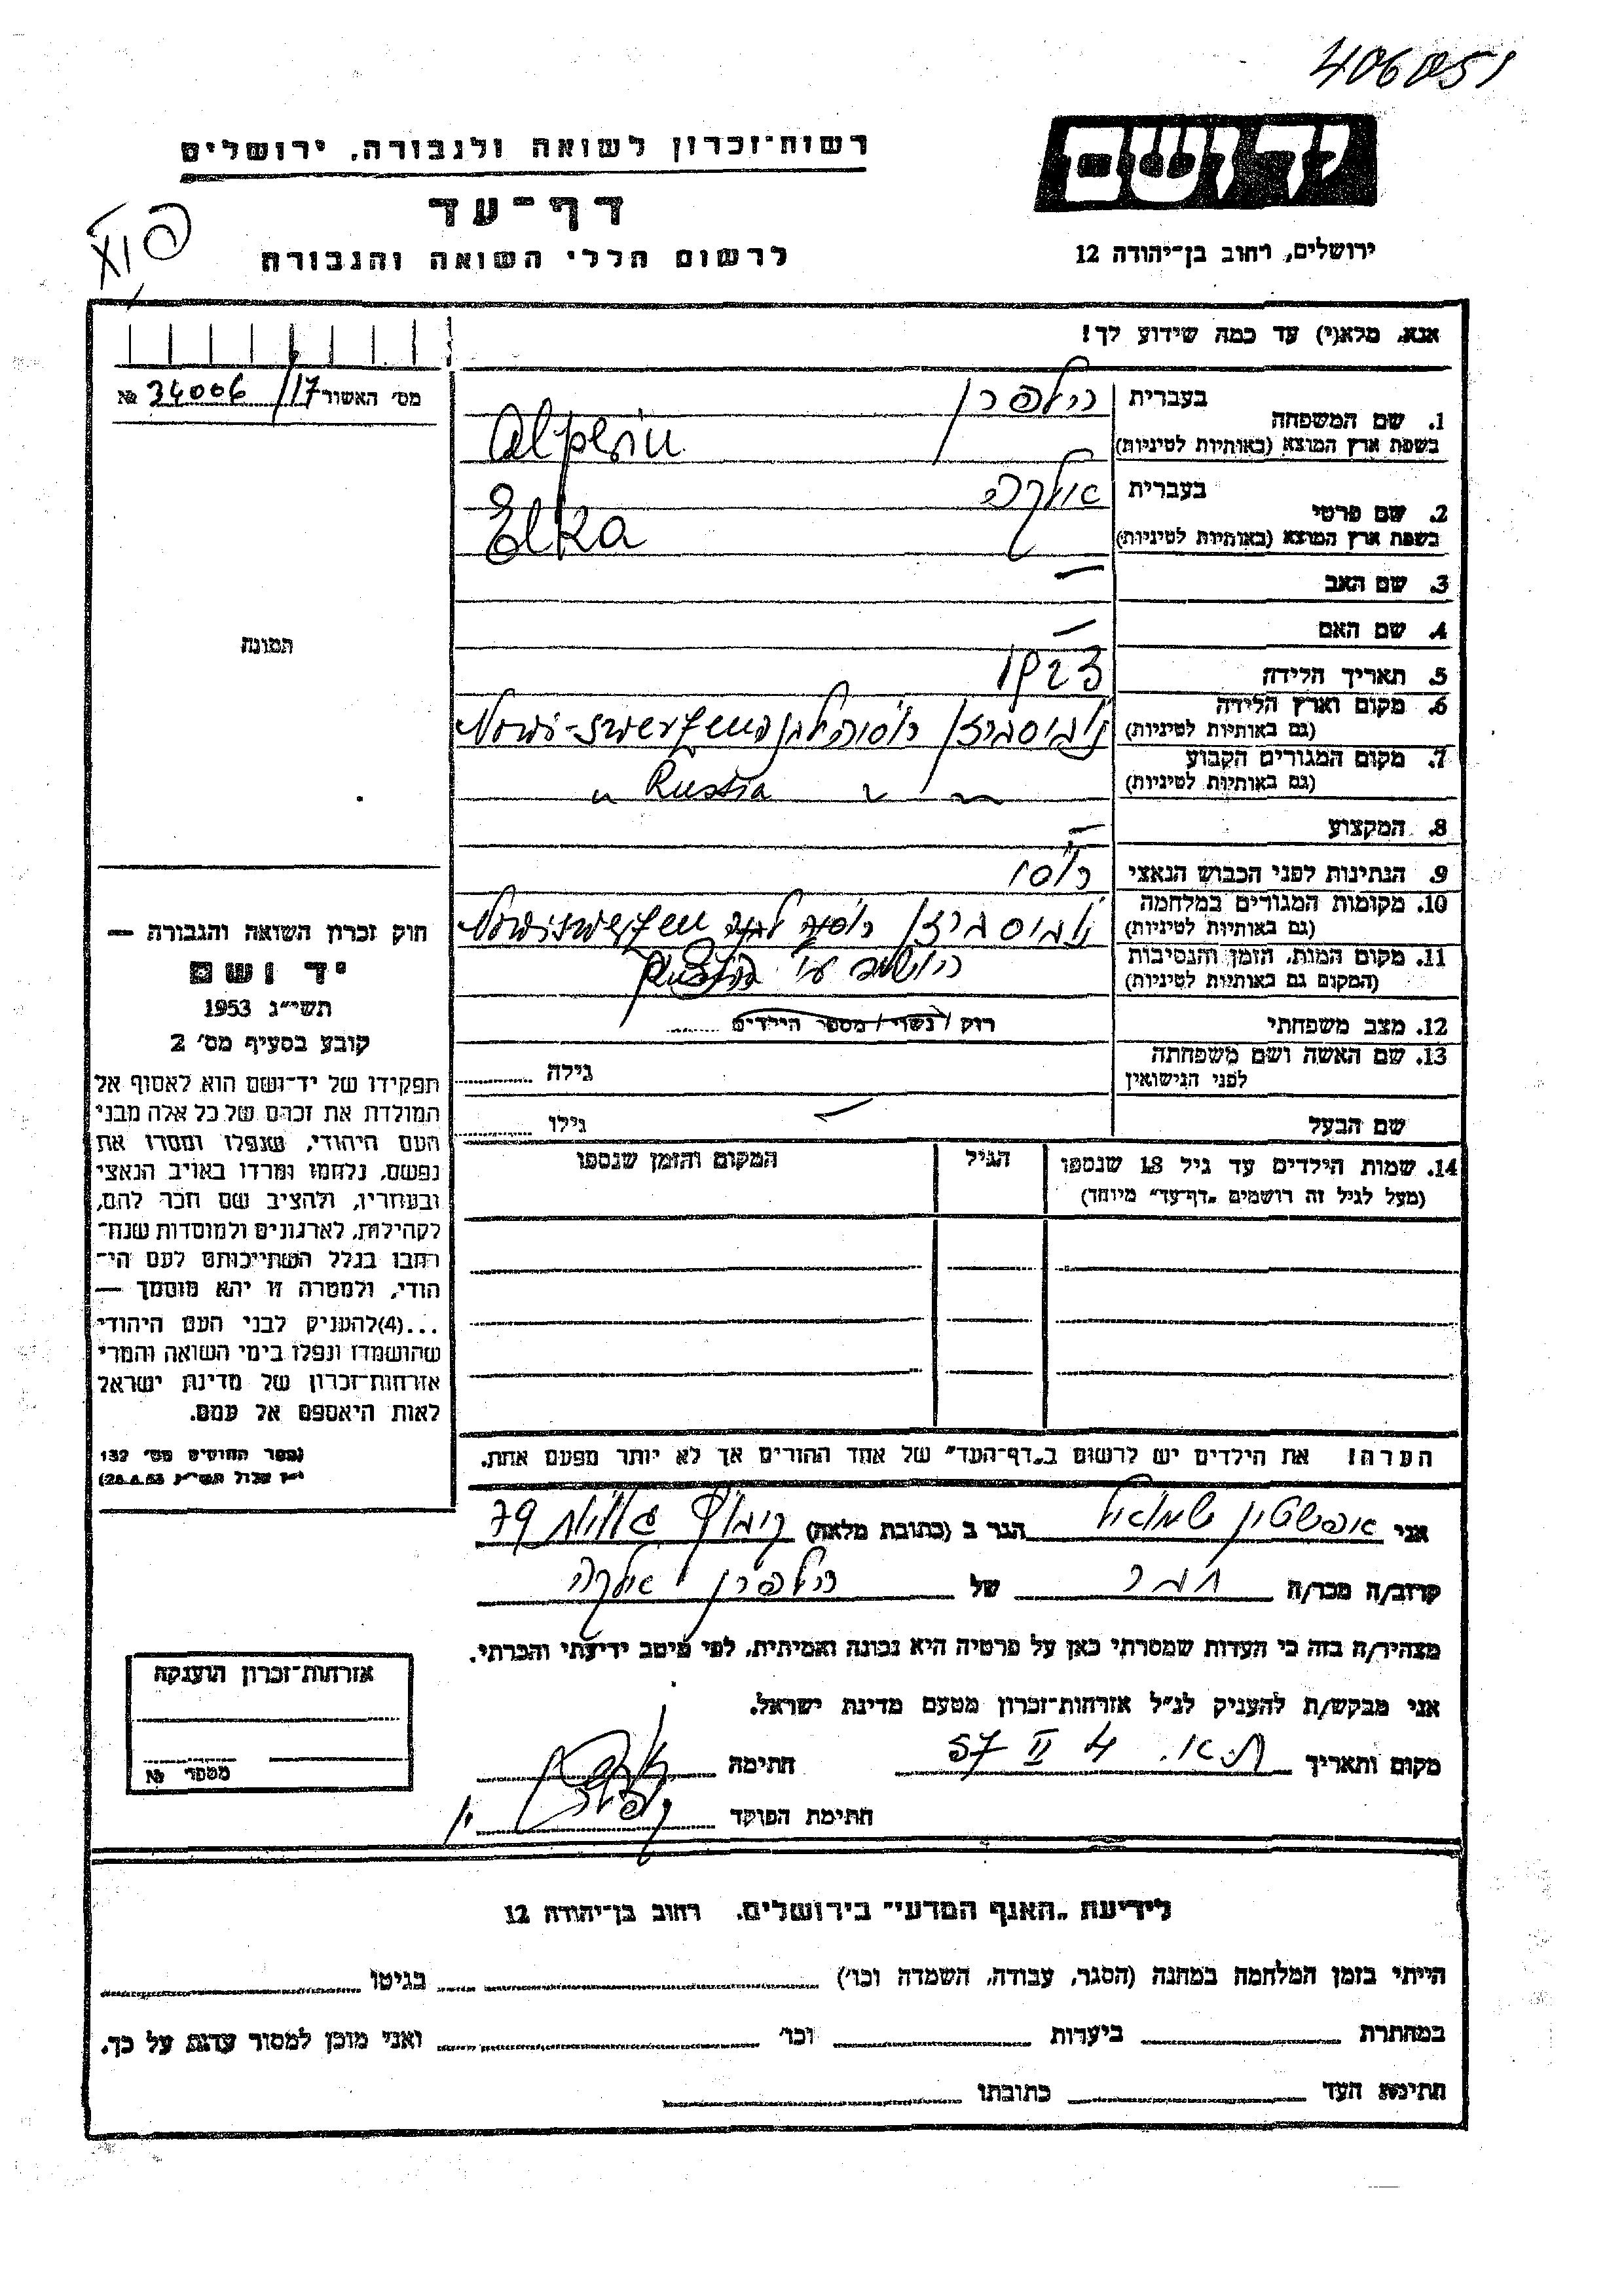 406051
יד ושם
רשות־זכרון לשואה ולגבורה, ירושלים
דף־עד
לרשום חללי השואה והגבורה
ירושלים, רחוב בן־יהודה 12
אנא, מלא(י) עד כמה שידוע לך!
מס׳ האשור 17/ 34006 №
תמונה
1. שם המשפחה
בעברית הלפרן
בשפת ארץ המוצא (באותיות לטיניות) Alperin
2. שם פרטי
בעברית אלקה
בשפת ארץ המוצא (באותיות לטיניות) Elka
3. שם האב —
4. שם האם —
5. תאריך הלידה 1923
6. מקום וארץ הלידה
(גם באותיות לטיניות)
7. מקום המגורים הקבוע
(גם באותיות לטיניות) " Russia
8. המקצוע —
9. הנתינות לפני הכבוש הנאצי רוסי
10. מקומות המגורים במלחמה
(גם באותיות לטיניות)
11. מקום המות, הזמן והנסיבות
(המקום גם באותיות לטיניות)
12. מצב משפחתי רווק / נשוי / מספר הילדים
13. שם האשה ושם משפחתה
לפני הנישואין גילה
שם הבעל גילו
14. שמות הילדים עד גיל 18 שנספו
(מעל לגיל זה רושמים „דף־עד״ מיוחד)
הגיל
המקום והזמן שנספו
הערה! את הילדים יש לרשום ב„דף־העד״ של אחד ההורים אך לא יותר מפעם אחת.
חוק זכרון השואה והגבורה —
יד ושם
תשי״ג 1953
קובע בסעיף מס׳ 2
תפקידו של יד־ושם הוא לאסוף אל
המולדת את זכרם של כל אלה מבני
העם היהודי, שנפלו ומסרו את
נפשם, נלחמו ומרדו באויב הנאצי
ובעוזריו, ולהציב שם וזכר להם,
לקהילות, לארגונים ולמוסדות שנח־
רבו בגלל השתייכותם לעם הי־
הודי, ולמטרה זו יהא מוסמך —
...(4) להעניק לבני העם היהודי
שהושמדו ונפלו בימי השואה והמרי
אזרחות־זכרון של מדינת ישראל
לאות היאספם אל עמם.
(ספר החוקים מס׳ 132
אני אפשטין שמואל הגר ב (כתובת מלאה) 79
קרוב/ה מכר/ה חבר של הלפרן אלקה
מצהיר/ה בזה כי העדות שמסרתי כאן על פרטיה היא נכונה ואמיתית, לפי מיטב ידיעתי והכרתי.
אני מבקש/ת להעניק לנ״ל אזרחות־זכרון מטעם מדינת ישראל.
מקום ותאריך ת״א. 4 II 57 חתימה
חתימת הפוקד
אזרחות־זכרון הוענקה
מספר №
לידיעת „האגף המדעי״ בירושלים, רחוב בן־יהודה 12
הייתי בזמן המלחמה במחנה (הסגר, עבודה, השמדה וכו׳) בגיטו
במחתרת ביערות וכו׳ ואני מוכן למסור עדות על כך.
חתימת העד כתובתו